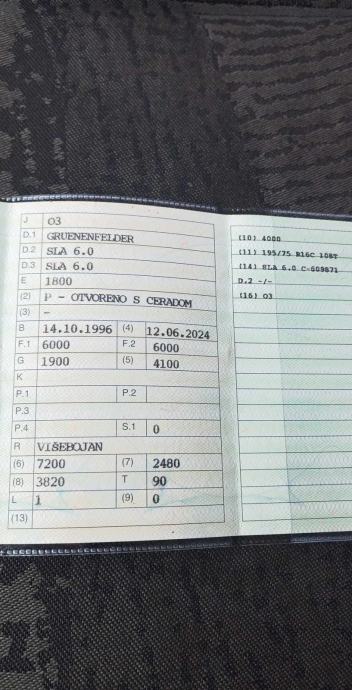 J O3
D.1 GRUENENFELDER
D.2 SLA 6.0
D.3 SLA 6.0
E 1800
(2) P - OTVORENO S CERADOM
(3) -
B 14.10.1996 (4) 12.06.2024
F.1 6000 F.2 6000
G 1900 (5) 4100
K
P.1 P.2
P.3
P.4 S.1 0
R VIŠEBOJAN
(6) 7200 (7) 2480
(8) 3820 T 90
L 1 (9) 0
(13)
(10) 4000
(11) 195/75 R16C 108T
(14) SLA 6.0 C-609871
D.2 -/-
(16) O3